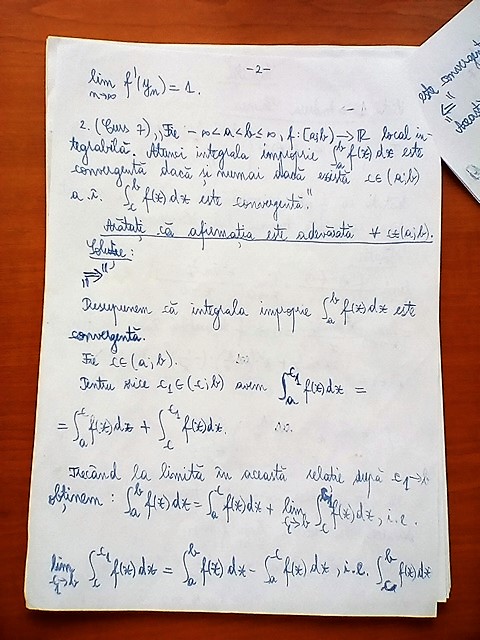 -2-
lim f'(yₙ) = 1.
n→∞
2. (Curs 7) „Fie -∞<a<b≤∞, f: [a;b) → ℝ local in-
tegrabilă. Atunci integrala improprie ∫ₐᵇ f(x)dx este
convergentă dacă și numai dacă există c∈(a;b)
a.î. ∫_c^b f(x)dx este convergentă."
Arătați că afirmația este adevărată ∀ c∈(a;b).
Soluție:
„⇒"
Presupunem că integrala improprie ∫ₐᵇ f(x)dx este
convergentă.
Fie c∈(a;b).
Pentru orice c₁∈(c;b) avem ∫_a^{c₁} f(x)dx =
= ∫_a^c f(x)dx + ∫_c^{c₁} f(x)dx.
Trecând la limită în această relație după c₁→b
obținem: ∫_a^b f(x)dx = ∫_a^c f(x)dx + lim ∫_c^{c₁} f(x)dx, i.e.
c₁→b
lim ∫_c^{c₁} f(x)dx = ∫_a^b f(x)dx - ∫_a^c f(x)dx, i.e. ∫_c^b f(x)dx
c₁→b
este convergent
„⇐"